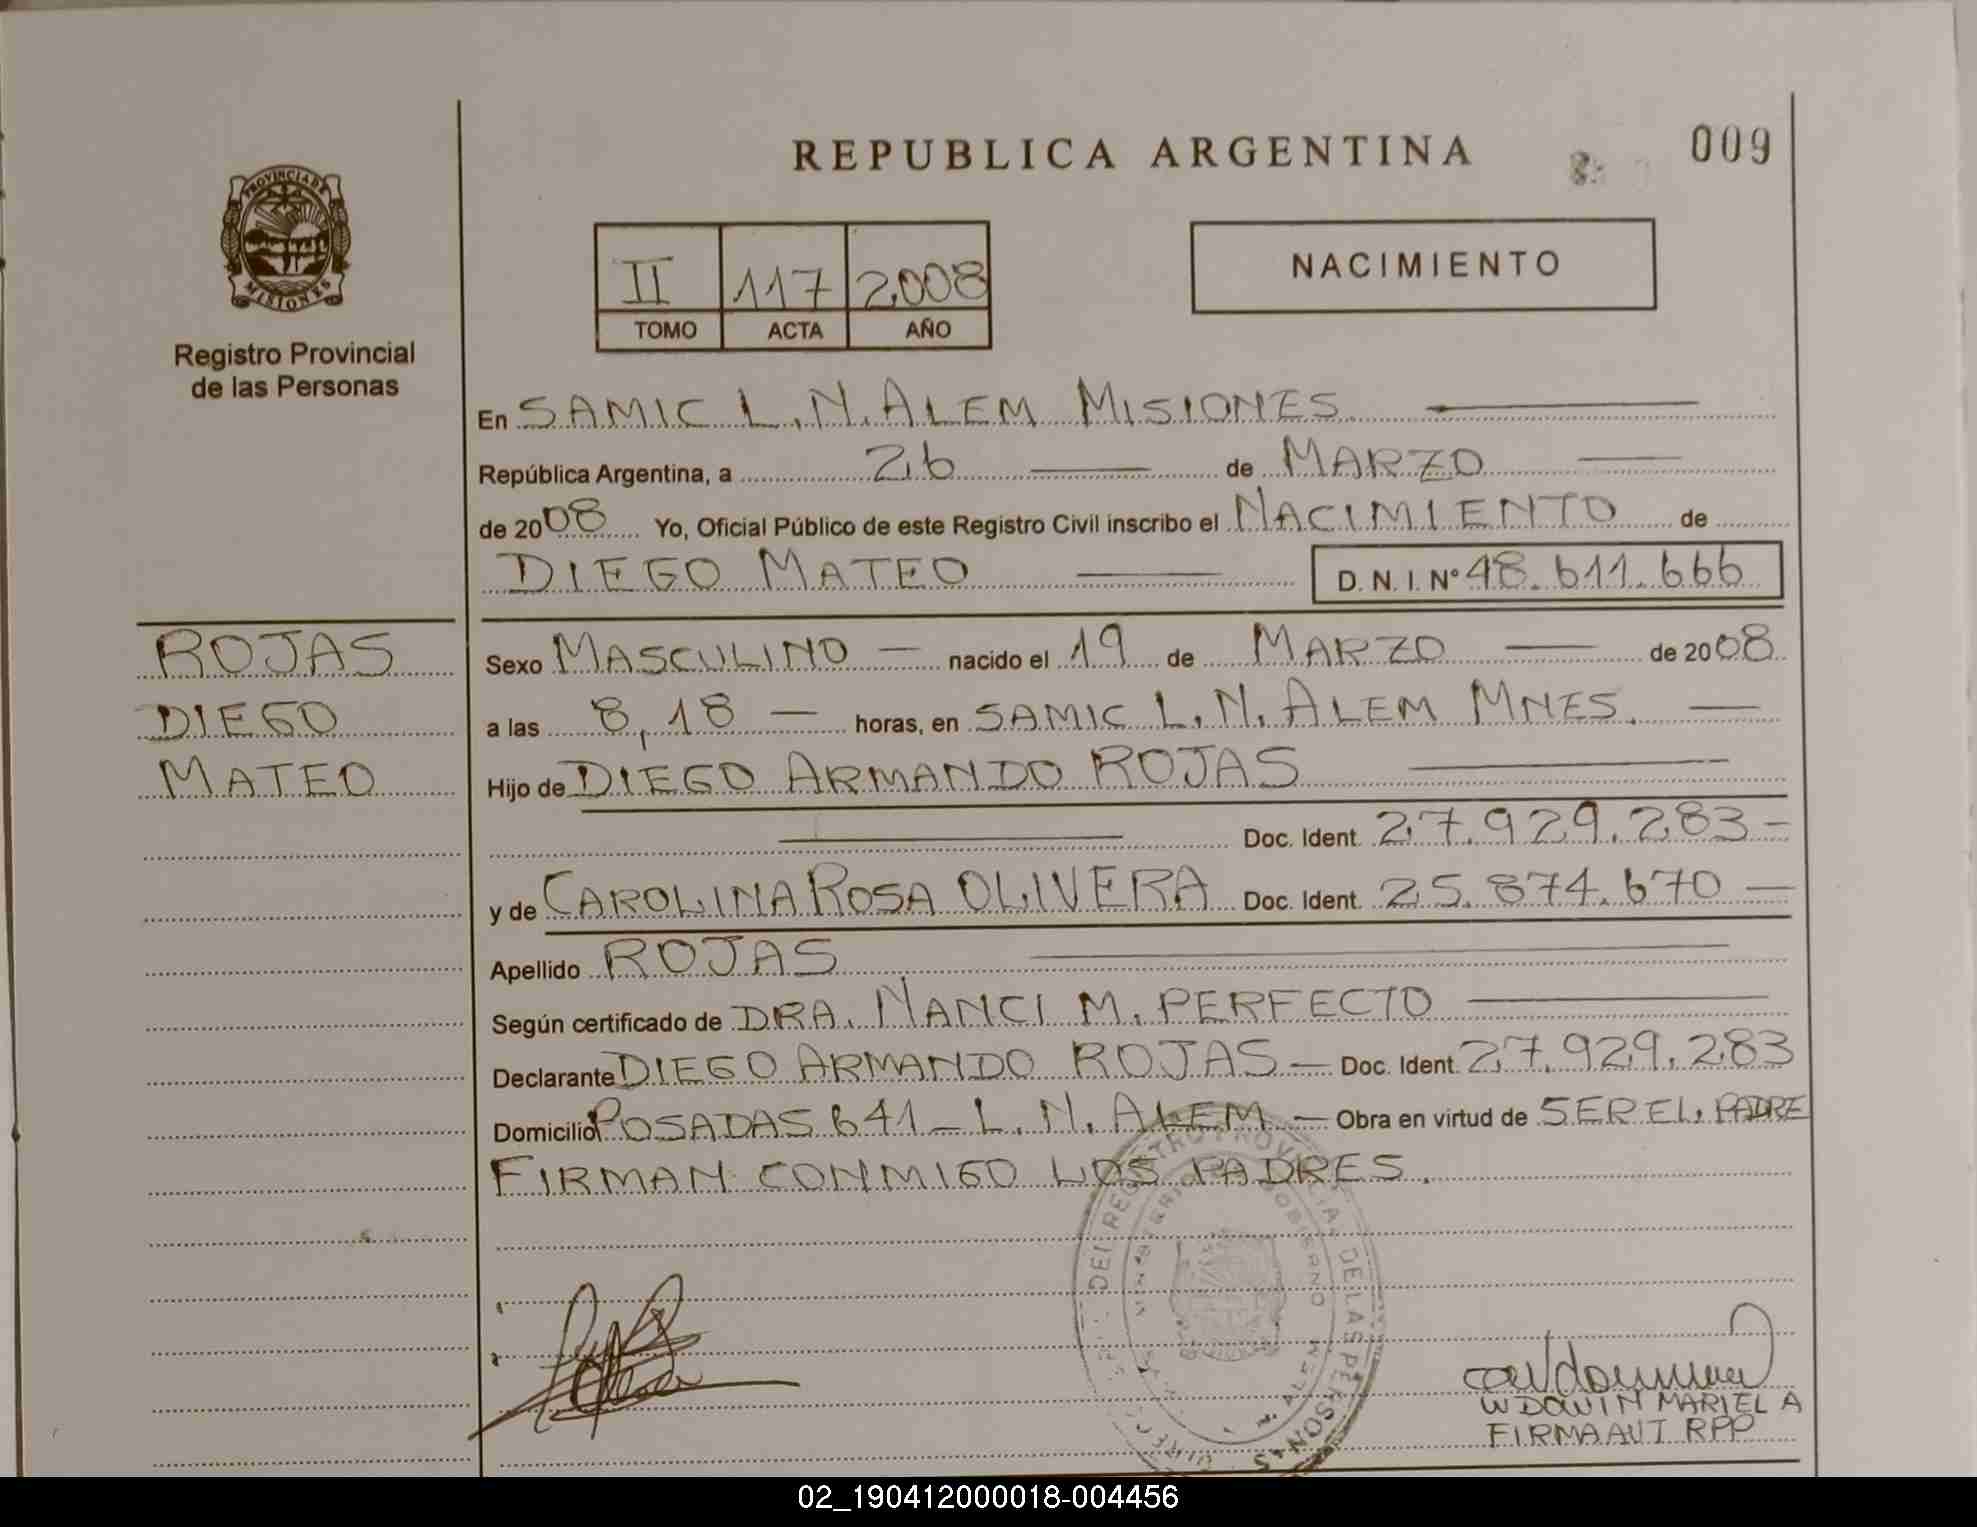 REPUBLICA ARGENTINA
009
PROVINCIA DE
MISIONES
Registro Provincial
de las Personas
II 117 2008
TOMO ACTA AÑO
NACIMIENTO
En SAMIC L.N.ALEM MISIONES.
República Argentina, a 26 de MARZO
de 2008 Yo, Oficial Público de este Registro Civil inscribo el NACIMIENTO de
DIEGO MATEO D. N. I. N° 48.611.666
ROJAS
DIEGO
MATEO
Sexo MASCULINO nacido el 19 de MARZO de 2008
a las 8,18 horas, en SAMIC L.N. ALEM MNES.
Hijo de DIEGO ARMANDO ROJAS
Doc. Ident. 27.929.283
y de CAROLINA ROSA OLIVERA Doc. Ident. 25.874.670
Apellido ROJAS
Según certificado de DRA. NANCI M. PERFECTO
Declarante DIEGO ARMANDO ROJAS Doc. Ident. 27.929.283
Domicilio POSADAS 641 - L.N. ALEM Obra en virtud de SER EL PADRE
FIRMAN CONMIGO LOS PADRES.
DEL REGISTRO PROVINCIAL DE LAS PERSONAS
MINISTERIO GOBIERNO
ALEM
WDOWIN MARIEL A
FIRMA AUT RPP
02_190412000018-004456